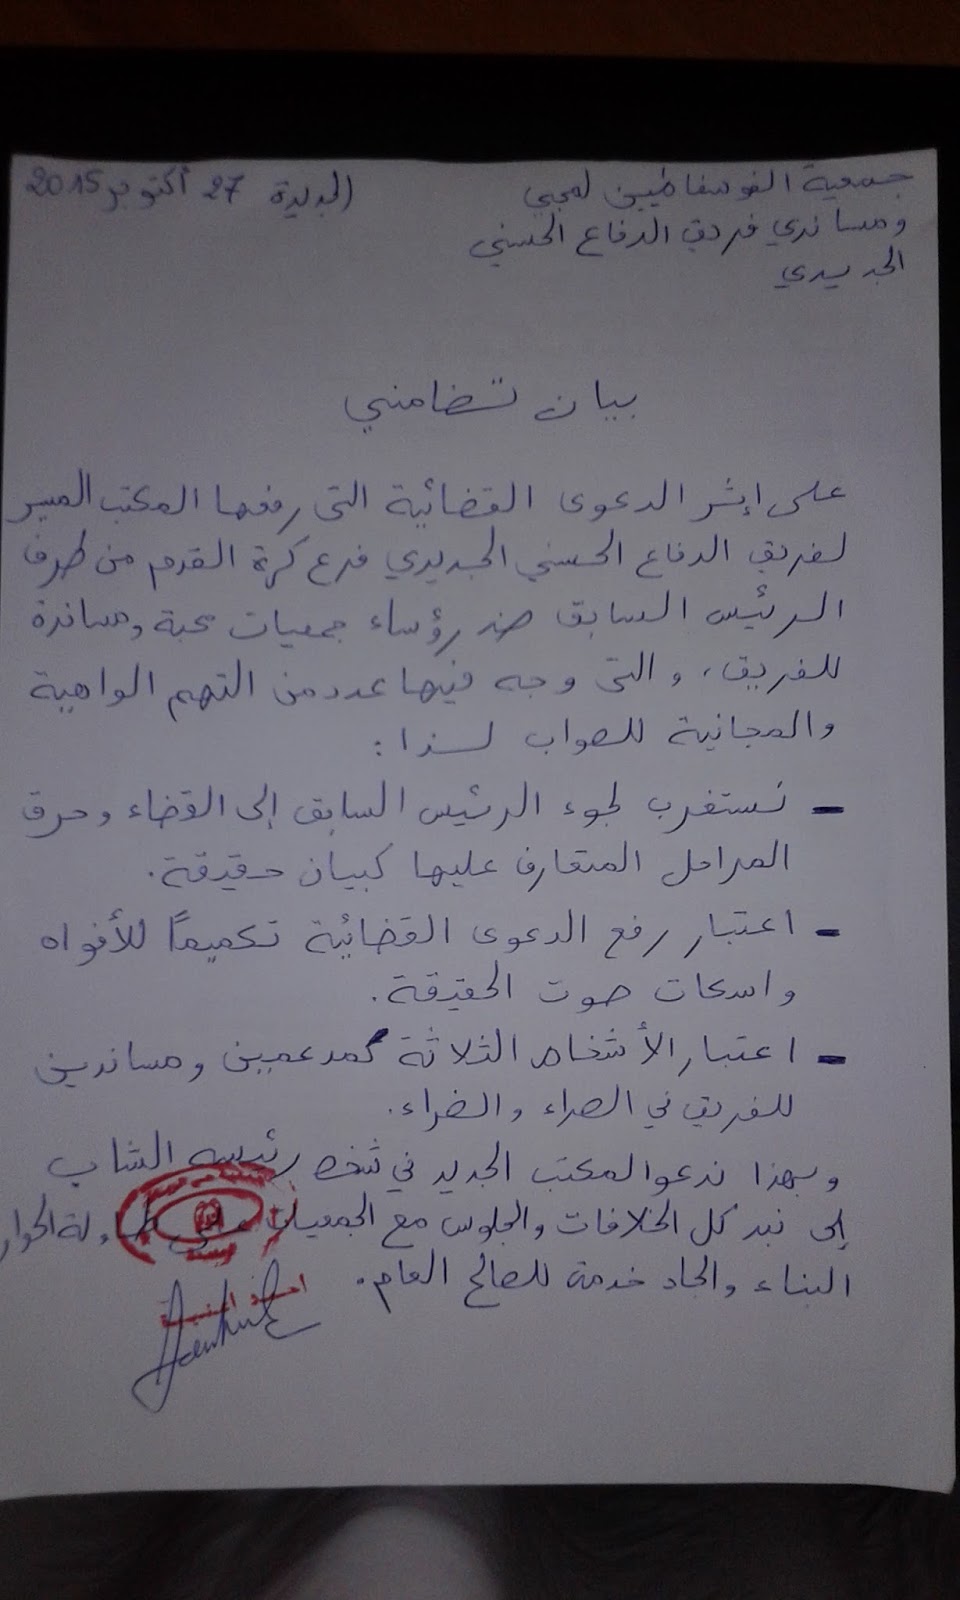 جمعية الفوسفاطيين لمحبي
الجديدة 27 أكتوبر 2015
ومساندي فريق الدفاع الحسني
الجديدي
بيان تضامني
على إثر الدعوى القضائية التي رفعها المكتب المسير
لفريق الدفاع الحسني الجديدي فرع كرة القدم من طرف
الرئيس السابق ضد رؤساء جمعيات محبة ومساندة
للفريق، والتي وجه فيها عدد من التهم الواهية
والمجانية للصواب لسذا :
- نستغرب لجوء الرئيس السابق إلى القضاء وحرق
المراحل المتعارف عليها كبيان حقيقة.
- اعتبار رفع الدعوى القضائية تكميماً للأفواه
واسكات صوت الحقيقة.
- اعتبار الأشخاص الثلاثة كمدعمين ومساندين
للفريق في السراء والضراء.
وبهذا ندعو المكتب الجديد في شخص رئيسه الشاب
إلى نبد كل الخلافات والجلوس مع الجمعيات على طاولة الحوار
البناء والجاد خدمة للصالح العام.